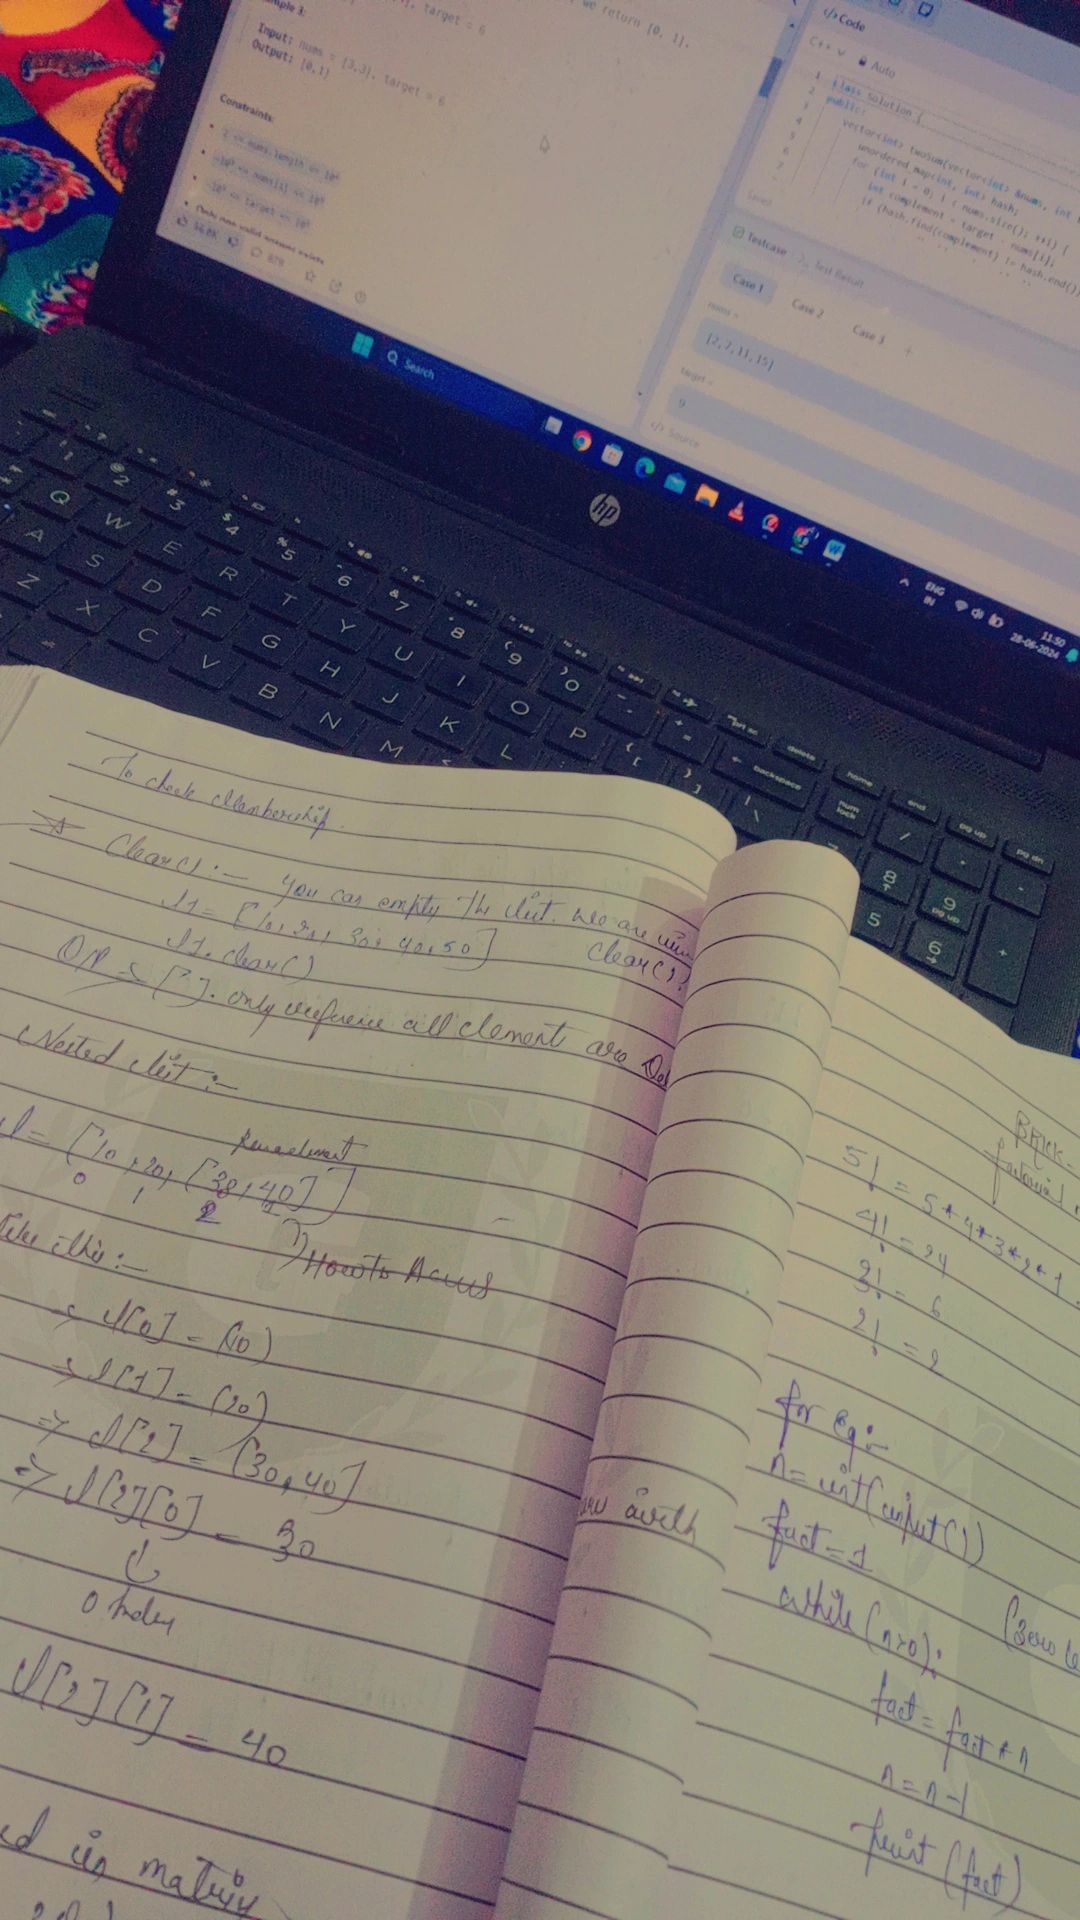 target = 6
we return [0, 1].
Example 3:
Input: nums = [3,3], target = 6
Output: [0,1]
Constraints:
2 <= nums.length <= 10⁴
-10⁹ <= nums[i] <= 10⁹
-10⁹ <= target <= 10⁹
Only one valid answer exists.
</> Code
C++ Auto
1 class Solution {
2 public:
3 vector<int> twoSum(vector<int> &nums, int
4 unordered_map<int, int> hash;
5 for (int i = 0; i < nums.size(); ++i) {
6 int complement = target - nums[i];
7 if (hash.find(complement) != hash.end()
Saved
Testcase Test Result
Case 1 Case 2 Case 3 +
nums =
[2,7,11,15]
target =
9
</> Source
Search
ENG
IN
11:50
28-06-2024
hp
! 1 @ 2 # 3 $ 4 % 5 ^ 6 & 7 * 8 ( 9 ) 0 - + = backspace
Q W E R T Y U I O P { [ } ] | \
A S D F G H J K L
Z X C V B N M <
prt sc delete home end pg up pg dn
num lock / * -
8 9 pg up +
5 6
To check Membership.
Clear() :- you can empty the list. we are
l1 = [10, 20, 30, 40, 50] clear()
l1. clear()
O/P => [ ]. only reference all element are
Nested list :-
l = [10, 20, [30, 40]]
0 1 2
How to Access
Like this :-
=> l[0] = (10)
=> l[1] = (20)
=> l[2] = [30, 40]
=> l[2][0] = 30
0 index
l[2][1] = 40
ed in matrix
BRICK-
factorial
5! = 5*4*3*2*1
4! = 24
3! = 6
2! = 2
for eg:-
n = int(input())
fact = 1
while (n>0):
(zero
fact = fact * n
n = n-1
print (fact)